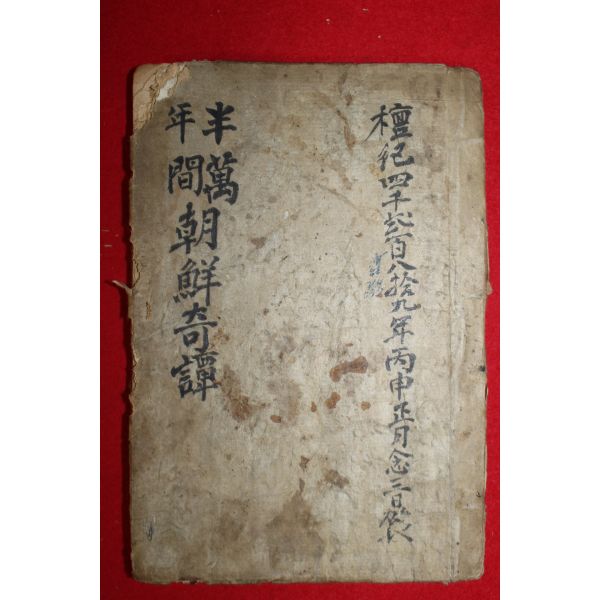 檀紀四千弍百八拾九年丙申正月念二日
半萬年間朝鮮奇譚